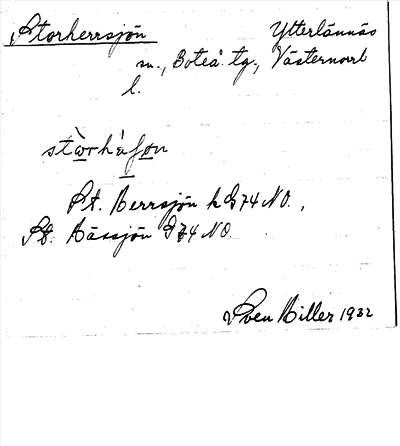 Storherrsjön Ytterlännäs
sn., Boteå tg., Västernorrl
l.
St. Herrsjön k G74 NO.,
St. Hässjön G74 NO.
Sven Hiller 1932